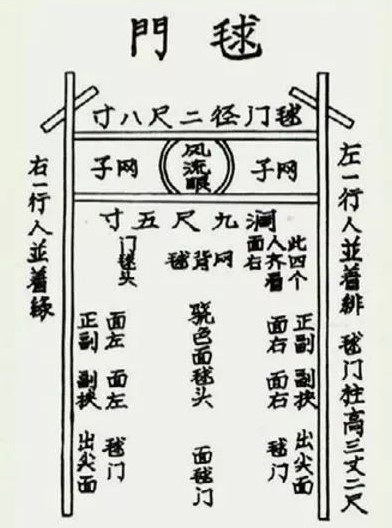 毬門
毬门径二尺八寸
网子
风流眼
网子
阔九尺五寸
左一行人並着緋 毬门柱高三丈二尺
此四个
人齐看
面右
网背毬
门毬头
正副 副挟 出尖面
面右 面右 毬门
骁色面毬头 面毬门
面左 面左 毬门
正副 副挟 出尖面
右一行人並着緑